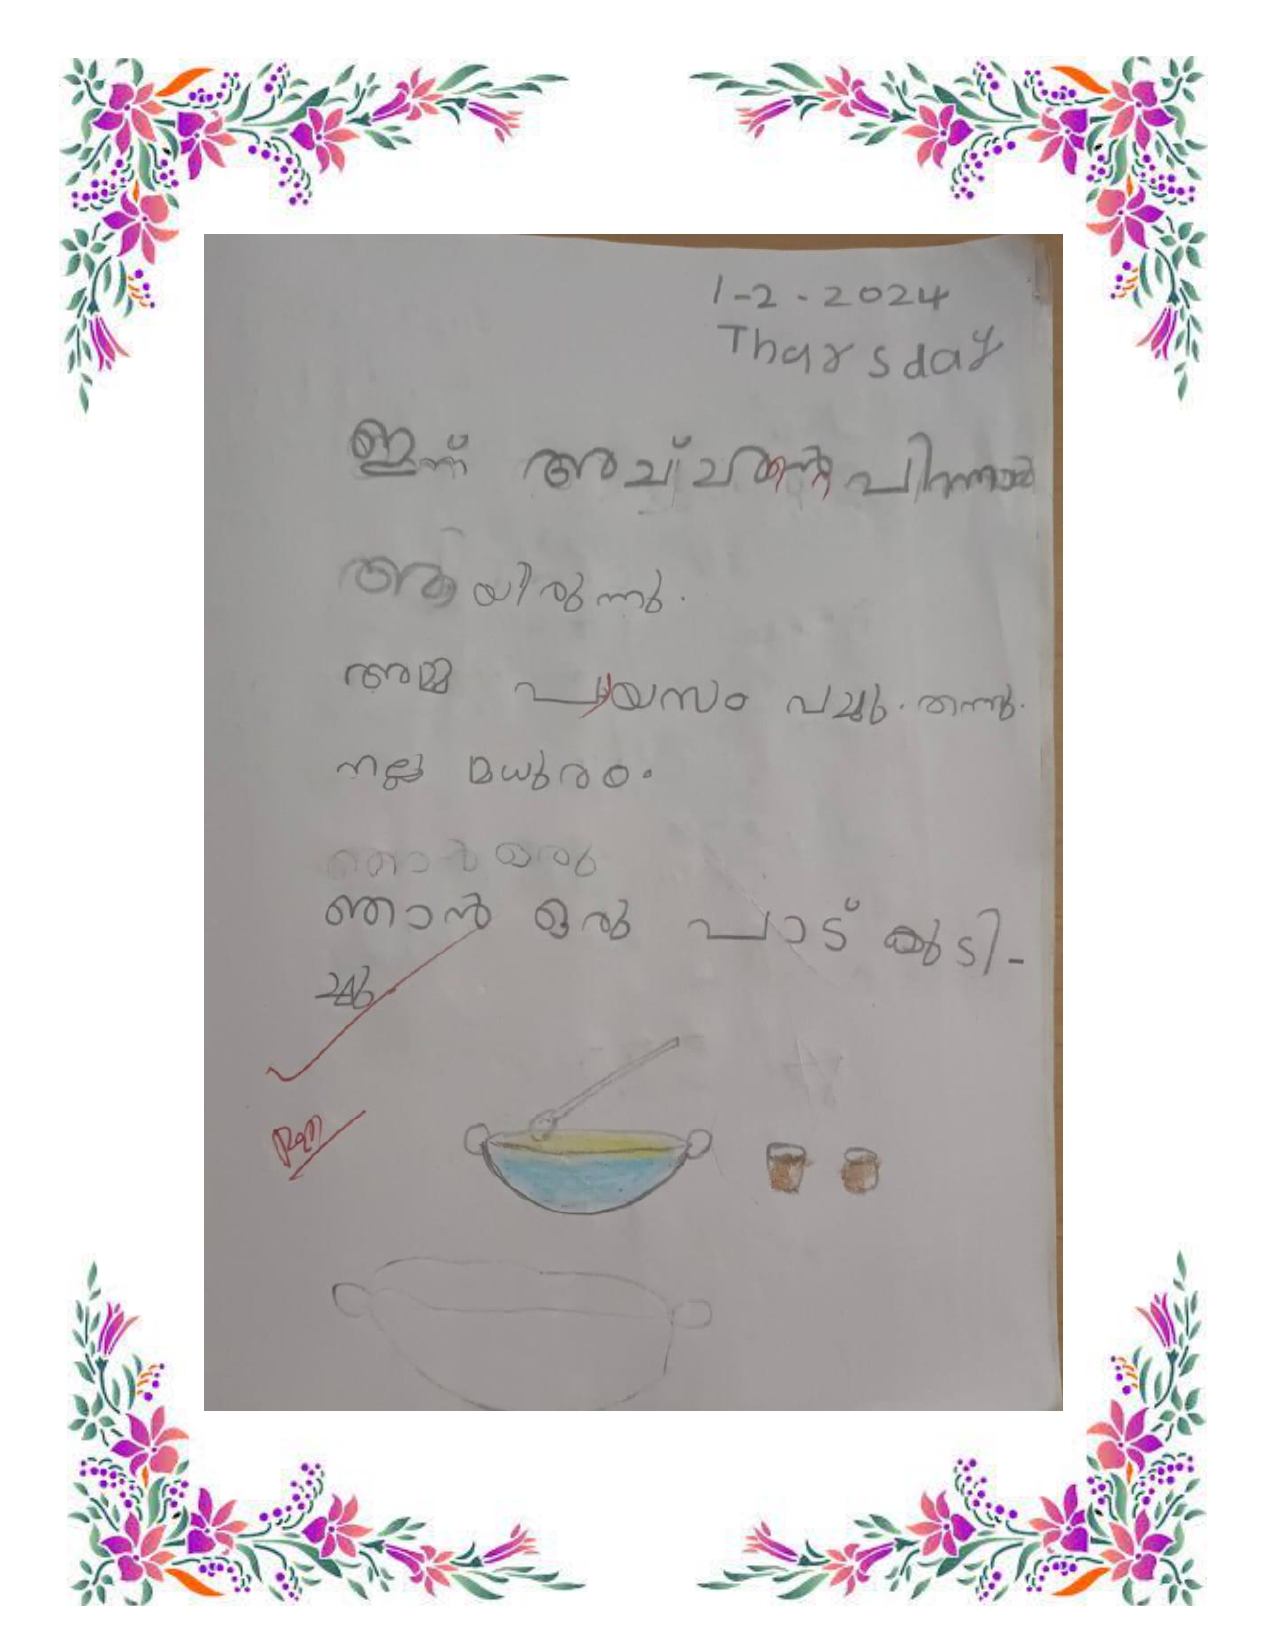 1-2-2024
Tharsday
ഇന്ന് അച്ചന്റെ പിറന്നാൾ
ആയിരുന്നു.
അമ്മ പായസം വച്ചു. തന്നു.
നല്ല മധുരം.
ഞാൻ ഒരു
ഞാൻ ഒരു പാട് കുടി-
ച്ചു.